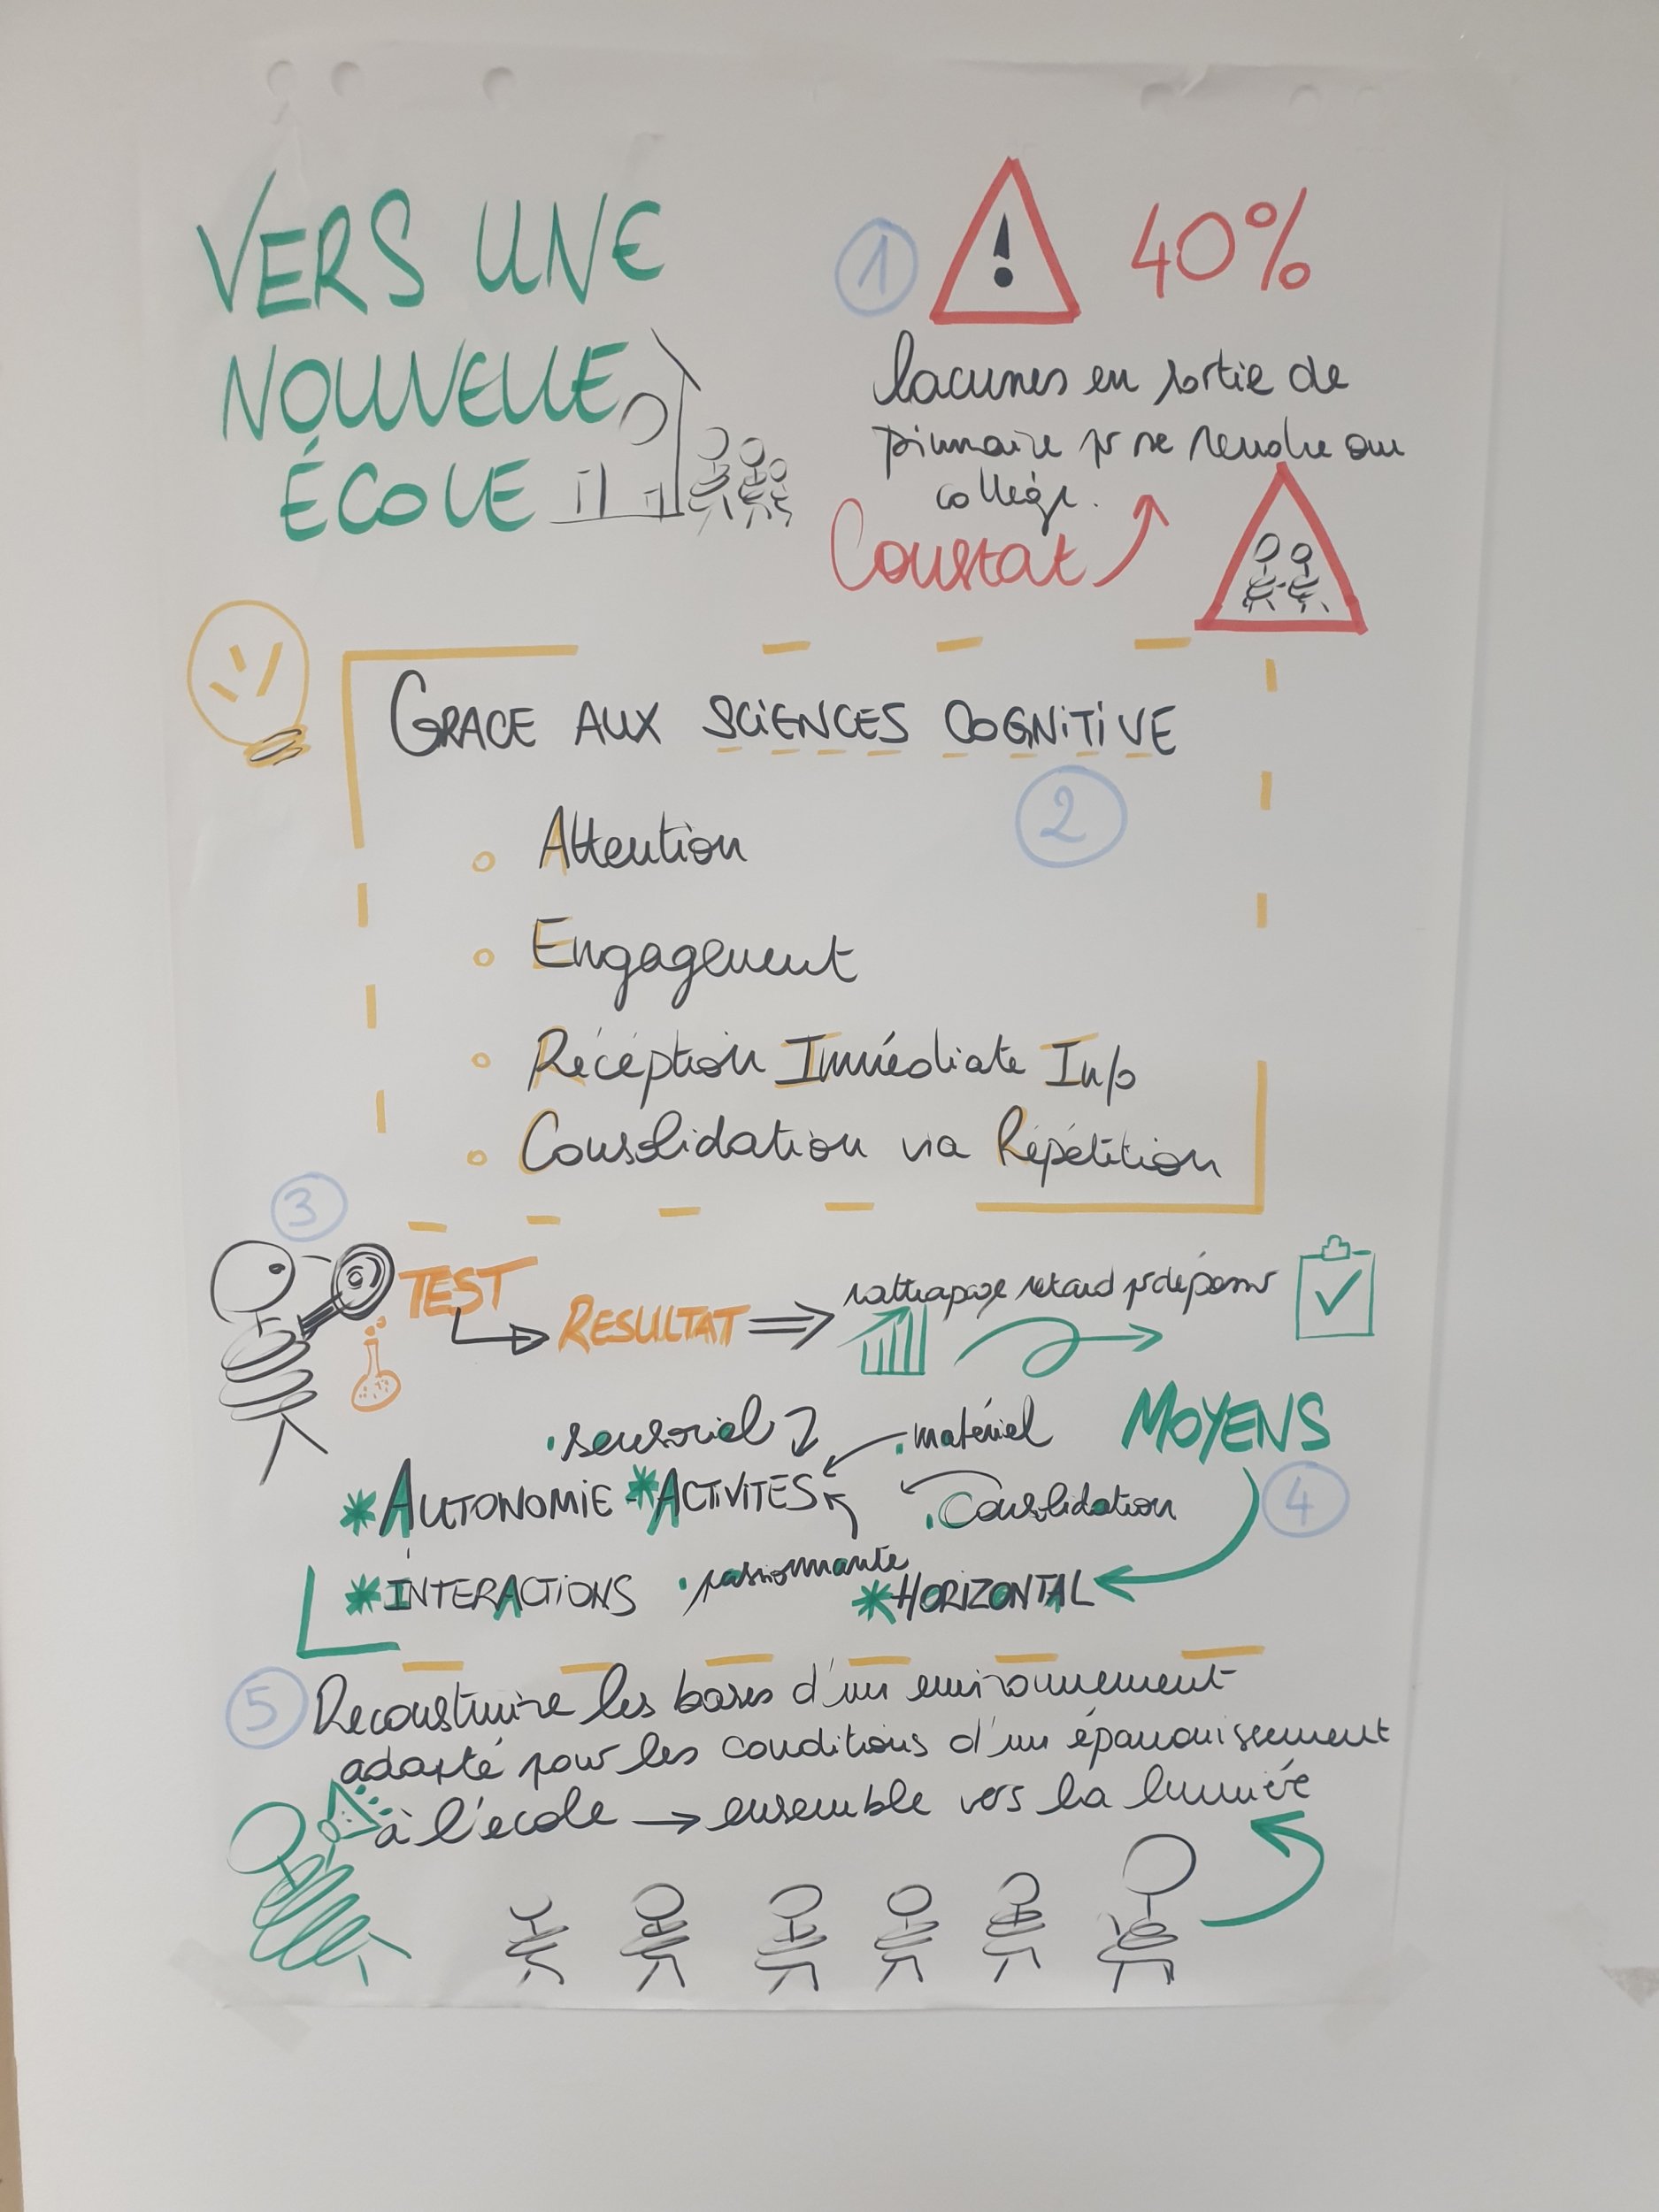 VERS UNE
NOUVELLE
ÉCOLE
1
40%
lacunes en sortie de
primaire pr se rendre au
collège.
Constat
GRACE AUX SCIENCES COGNITIVE
2
Attention
Engagement
Récéption Immédiate Info
Consolidation via Répétition
3
TEST
RESULTAT
rattrapage retard pr dépasser
MOYENS
4
. sensoriel
. matériel
* AUTONOMIE - * ACTIVITES
. Consolidation
* INTERACTIONS
. passionnante
* HORIZONTAL
5 Reconstruire les bases d'un environnement
adapté pour les conditions d'un épanouissement
à l'école → ensemble vers la lumière